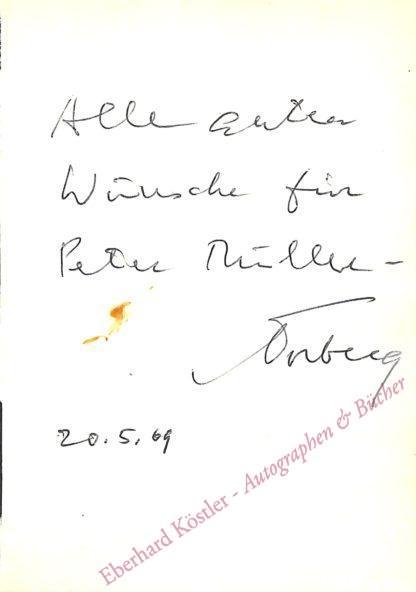 Alle guten
Wünsche für
Peter Müller –
Torberg
20.5.69
Eberhard Köstler - Autographen & Bücher